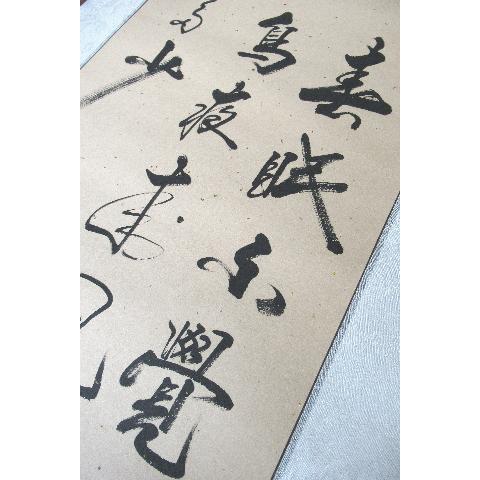 春眠不覺
鳥夜來
多少